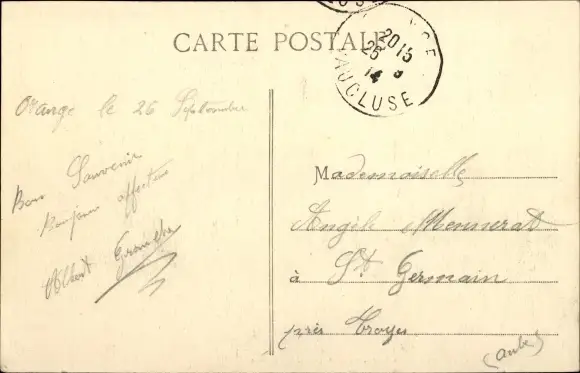 CARTE POSTALE
ORANGE
20 15
26 9
14
VAUCLUSE
Orange le 26 Septembre
Bon Souvenir
Bonjour affectueux
Albert
Mademoiselle
Angèle Mennerat
à St Germain
près Troyes
(Aube)